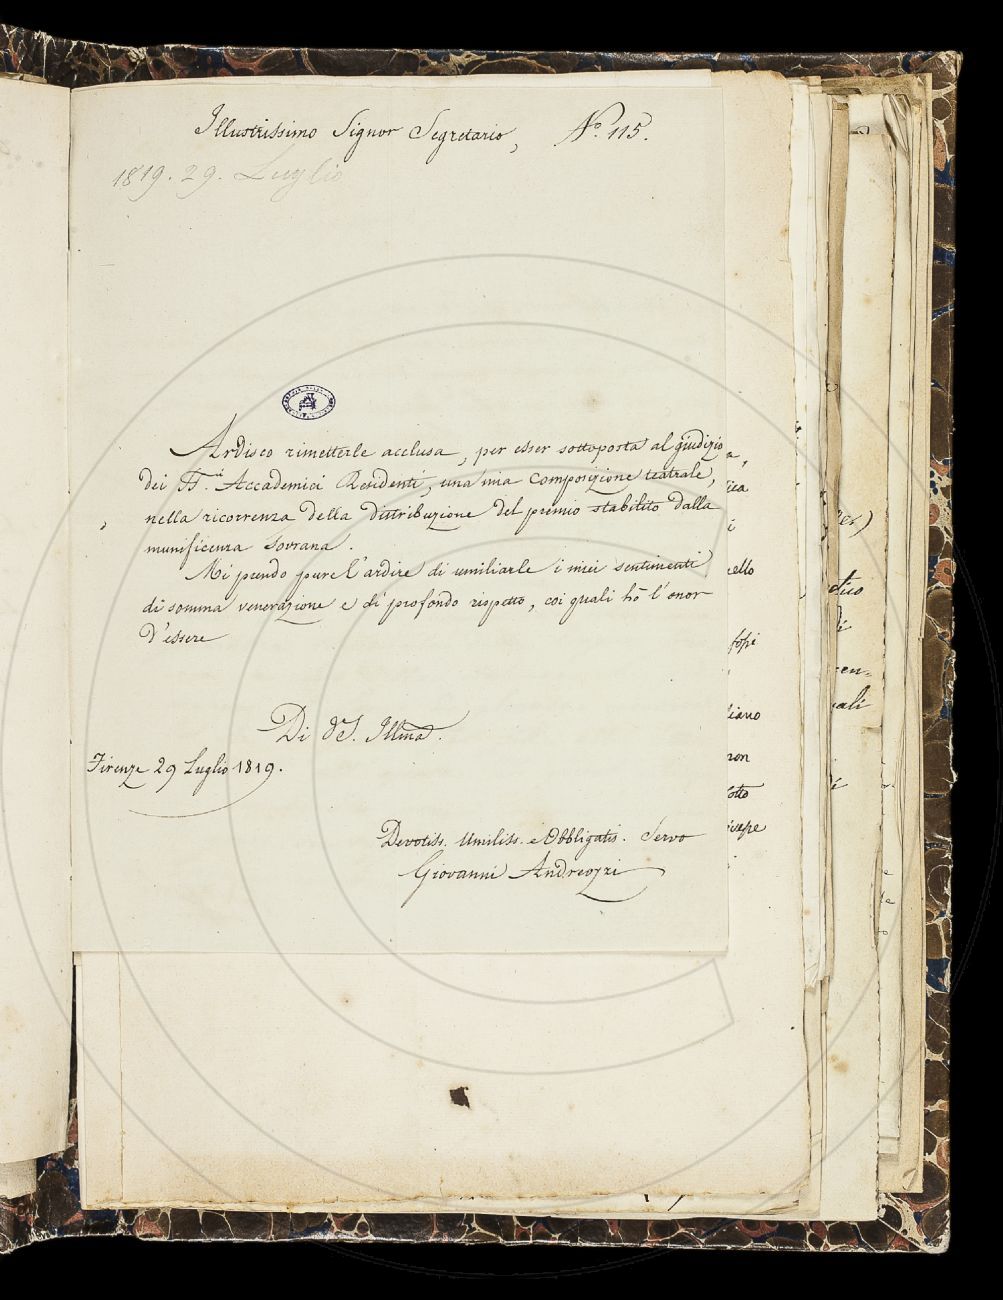 Illustrissimo Signor Segretario, N.º 115.
1819. 29. Luglio
Ardisco rimetterle acclusa, per esser sottoposta al giudizio
dei SS.ri Accademici Residenti, una mia Composizione teatrale,
nella ricorrenza della distribuzione del premio stabilito dalla
munificenza Sovrana.
Mi prendo pure l'ardire di umiliarle i miei sentimenti
di somma venerazione e di profondo rispetto, coi quali hò l'onor
d'essere
Di V.S. Illma.
Firenze 29 Luglio 1819.
Devotiss. Umiliss. e Obbligatis. Servo
Giovanni Andreozzi